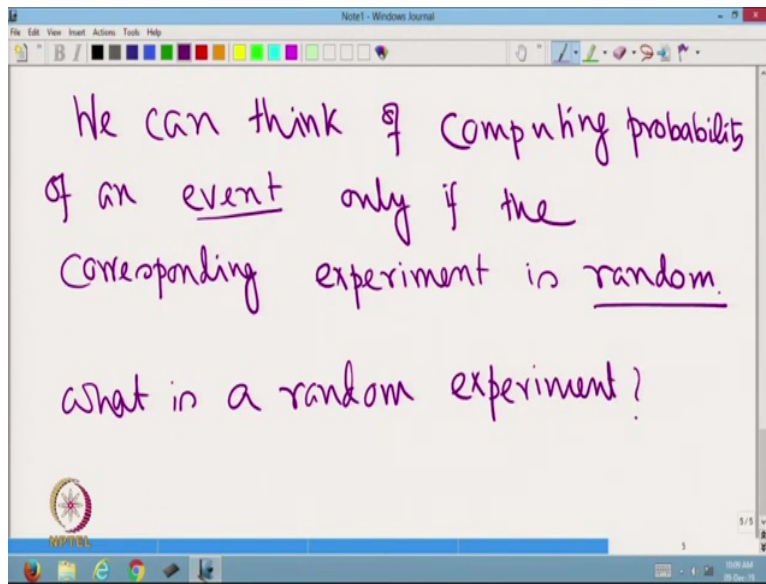 Note1 - Windows Journal
File Edit View Insert Actions Tools Help
B I
We can think of computing probability
of an event only if the
corresponding experiment is random.
What is a random experiment?
NPTEL
5/5
5
10:09 AM
09-Dec-15